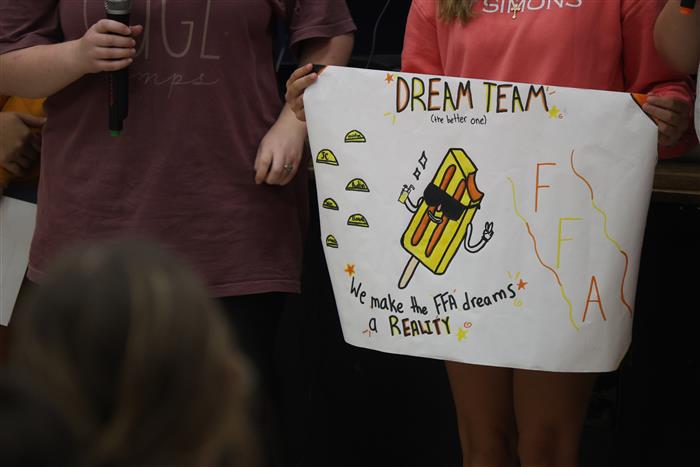 SIMONS
DREAM TEAM
(the better one)
F
F
A
We make the FFA dreams
a REALITY